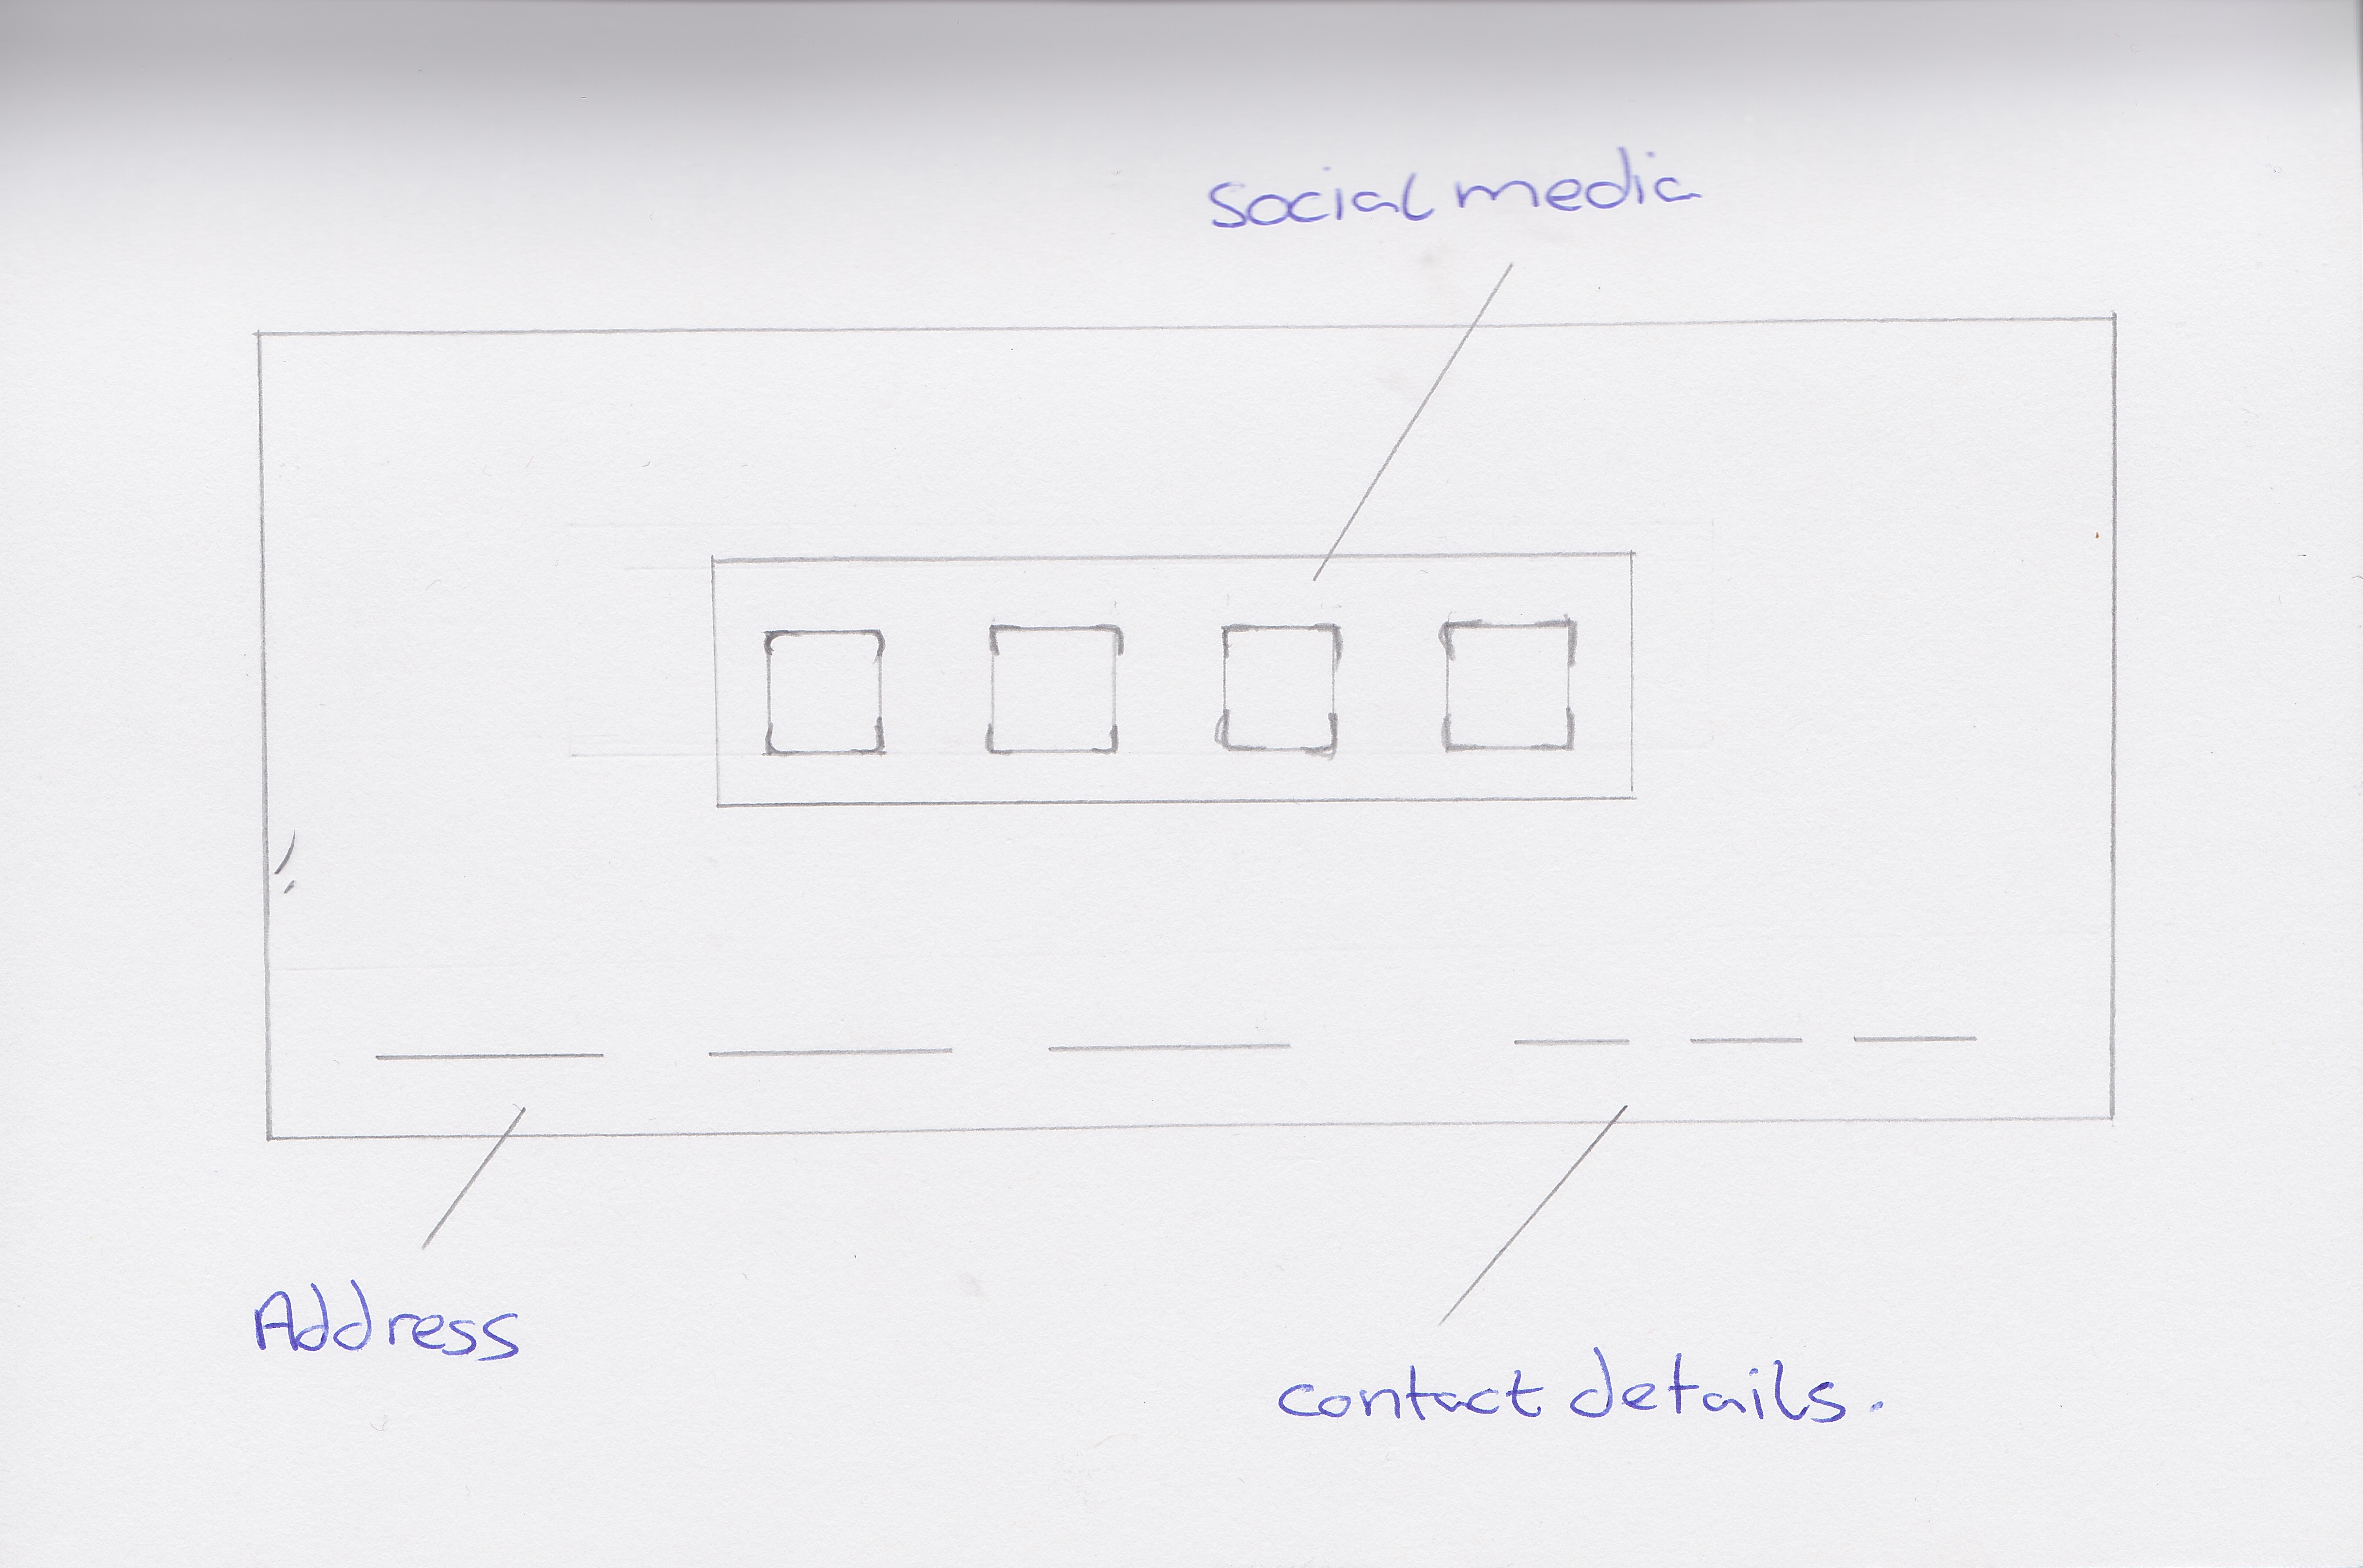 social media
Address
contact details.